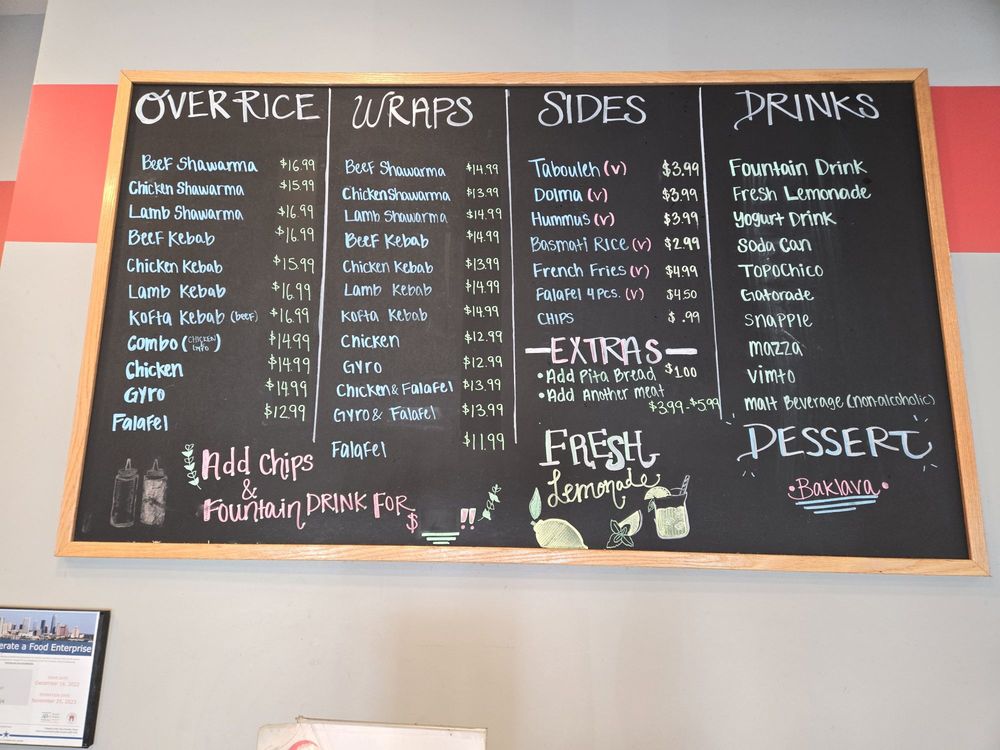 OVER RICE
Beef Shawarma $16.99
Chicken Shawarma $15.99
Lamb Shawarma $16.99
Beef Kebab $16.99
Chicken Kebab $15.99
Lamb Kebab $16.99
Kofta Kebab (beef) $16.99
Combo (CHICKEN GYRO) $14.99
Chicken $14.99
Gyro $14.99
Falafel $12.99
Add Chips
&
Fountain DRINK FOR
$ !!
WRAPS
Beef Shawarma $14.99
Chicken Shawarma $13.99
Lamb Shawarma $14.99
Beef Kebab $14.99
Chicken Kebab $13.99
Lamb Kebab $14.99
Kofta Kebab $14.99
Chicken $12.99
Gyro $12.99
Chicken & Falafel $13.99
Gyro & Falafel $13.99
Falafel $11.99
SIDES
Tabouleh (v) $3.99
Dolma (v) $3.99
Hummus (v) $3.99
Basmati Rice (v) $2.99
French Fries (v) $4.99
Falafel 4 Pcs. (v) $4.50
CHIPS $ .99
EXTRAS
• Add Pita Bread $1.00
• Add Another meat
$3.99-$5.99
FRESH
Lemonade
DRINKS
Fountain Drink
Fresh Lemonade
Yogurt Drink
Soda Can
TOPOCHICO
Gatorade
Snapple
mazza
Vimto
Malt Beverage (non-alcoholic)
DESSERT
•Baklava•
erate a Food Enterprise
December 16, 2022
November 25, 2023